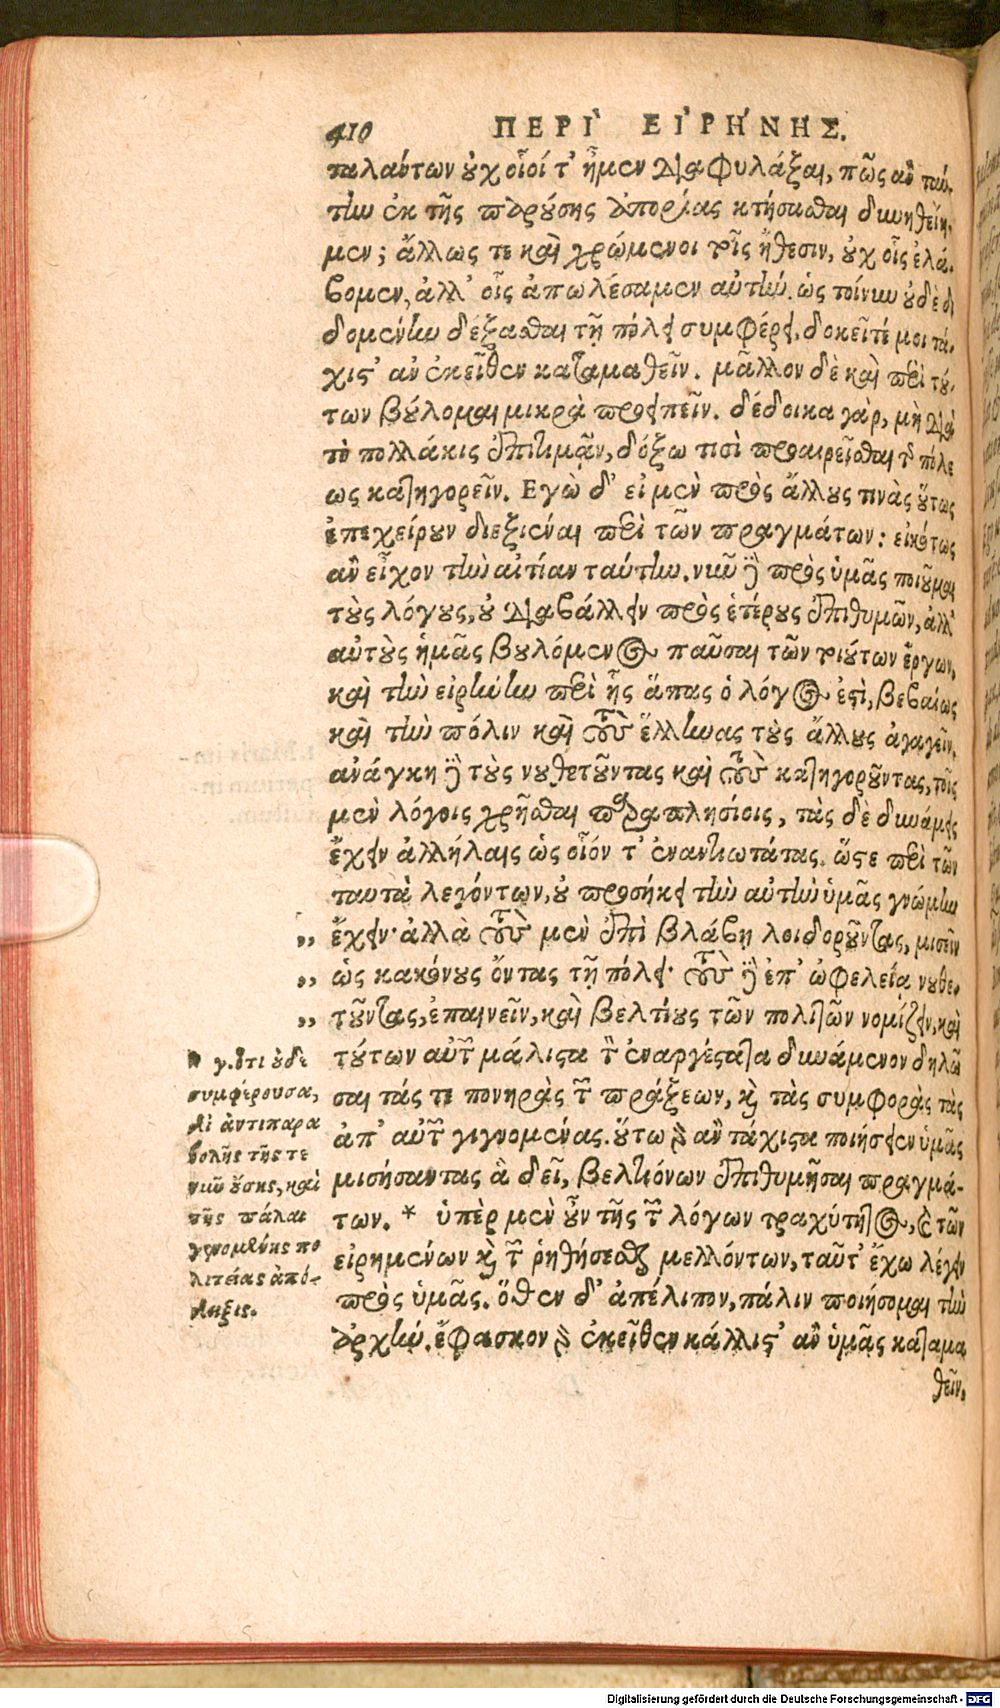 410 ΠΕΡΙ` ΕΙ᾿ΡΗ´ΝΗΣ.
ταλάντων οὐχ οἷοί τ' ἦμεν διαφυλάξαι, πῶς ἂν ταύ-
την ἐκ τῆς παρούσης ἀπορίας κτήσασθαι δυνηθείη-
μεν; ἄλλως τε καὶ χρώμενοι τοῖς ἤθεσιν, οὐχ οἷς ἐλά-
βομεν, ἀλλ' οἷς ἀπωλέσαμεν αὐτήν. ὡς τοίνυν οὐδὲ δι
δομένην δέξασθαι τῇ πόλει συμφέρει, δοκεῖτέ μοι τά-
χιστ' ἂν ἐκεῖθεν καταμαθεῖν. μᾶλλον δὲ καὶ περὶ τού-
των βούλομαι μικρὰ προσειπεῖν. δέδοικα γὰρ, μὴ διὰ
τὸ πολλάκις ἐπιτιμᾷν, δόξω τισὶ προαιρεῖσθαι τῆς πόλε
ως κατηγορεῖν. Εγὼ δ' εἰ μὲν πρὸς ἄλλους τινὰς οὕτως
ἐπεχείρουν διεξιέναι περὶ τῶν πραγμάτων: εἰκότως
ἂν εἶχον τὴν αἰτίαν ταύτην. νῦν δὲ πρὸς ὑμᾶς ποιοῦμαι
τοὺς λόγους, οὐ διαβάλλειν πρὸς ἑτέρους ἐπιθυμῶν, ἀλλ'
αὐτοὺς ἡμᾶς βουλόμενος παῦσαι τῶν τοιούτων ἔργων,
καὶ τὴν εἰρήνην περὶ ἧς ἅπας ὁ λόγος ἐστὶ, βεβαίως
καὶ τὴν πόλιν καὶ τοὺς ἕλληνας τοὺς ἄλλους ἀγαγεῖν,
ἀνάγκη δὲ τοὺς νουθετοῦντας καὶ τοὺς κατηγοροῦντας, τοῖς
μὲν λόγοις χρῆσθαι παραπλησίοις, τὰς δὲ δυνάμεις
ἔχειν ἀλλήλαις ὡς οἷόν τ' ἐναντιωτάτας. ὥστε περὶ τῶν
ταυτὰ λεγόντων, οὐ προσήκει τὴν αὐτὴν ὑμᾶς γνώμην
,, ἔχειν· ἀλλὰ τοὺς μὲν ἐπὶ βλάβῃ λοιδοροῦντας, μισεῖν
,, ὡς κακόνους ὄντας τῇ πόλει· τοὺς δὲ ἐπ' ὠφελείᾳ νουθε-
,, τοῦντας, ἐπαινεῖν, καὶ βελτίους τῶν πολιτῶν νομίζειν, καὶ
τούτων αὐτῶν μάλιστα τὸν ἐναργέστατα δυνάμενον δηλῶ
σαι τάς τε πονηρὰς τῶν πράξεων, καὶ τὰς συμφορὰς τὰς
ἀπ' αὐτῶν γιγνομένας. οὕτω γὰρ ἂν τάχιστα ποιήσειεν ὑμᾶς
μισήσαντας ἃ δεῖ, βελτιόνων ἐπιθυμῆσαι πραγμά-
των. * ὑπὲρ μὲν οὖν τῆς τῶν λόγων τραχύτητος, καὶ τῶν
εἰρημένων καὶ τῶν ῥηθήσεσθαι μελλόντων, ταῦτ' ἔχω λέγειν
πρὸς ὑμᾶς. ὅθεν δ' ἀπέλιπον, πάλιν ποιήσομαι τὴν
ἀρχήν. ἔφασκον γὰρ ἐκεῖθεν κάλλιστ' ἂν ὑμᾶς καταμα
θεῖν,
γ. ὅτι οὐδὲ
συμφέρουσα,
δι ἀντιπαρα
βολῆς τῆς τε
νῦν οὔσης, καὶ
τῆς πάλαι
γενομένης πο
λιτείας ἀπό-
δειξις.
Digitalisierung gefördert durch die Deutsche Forschungsgemeinschaft - DFG